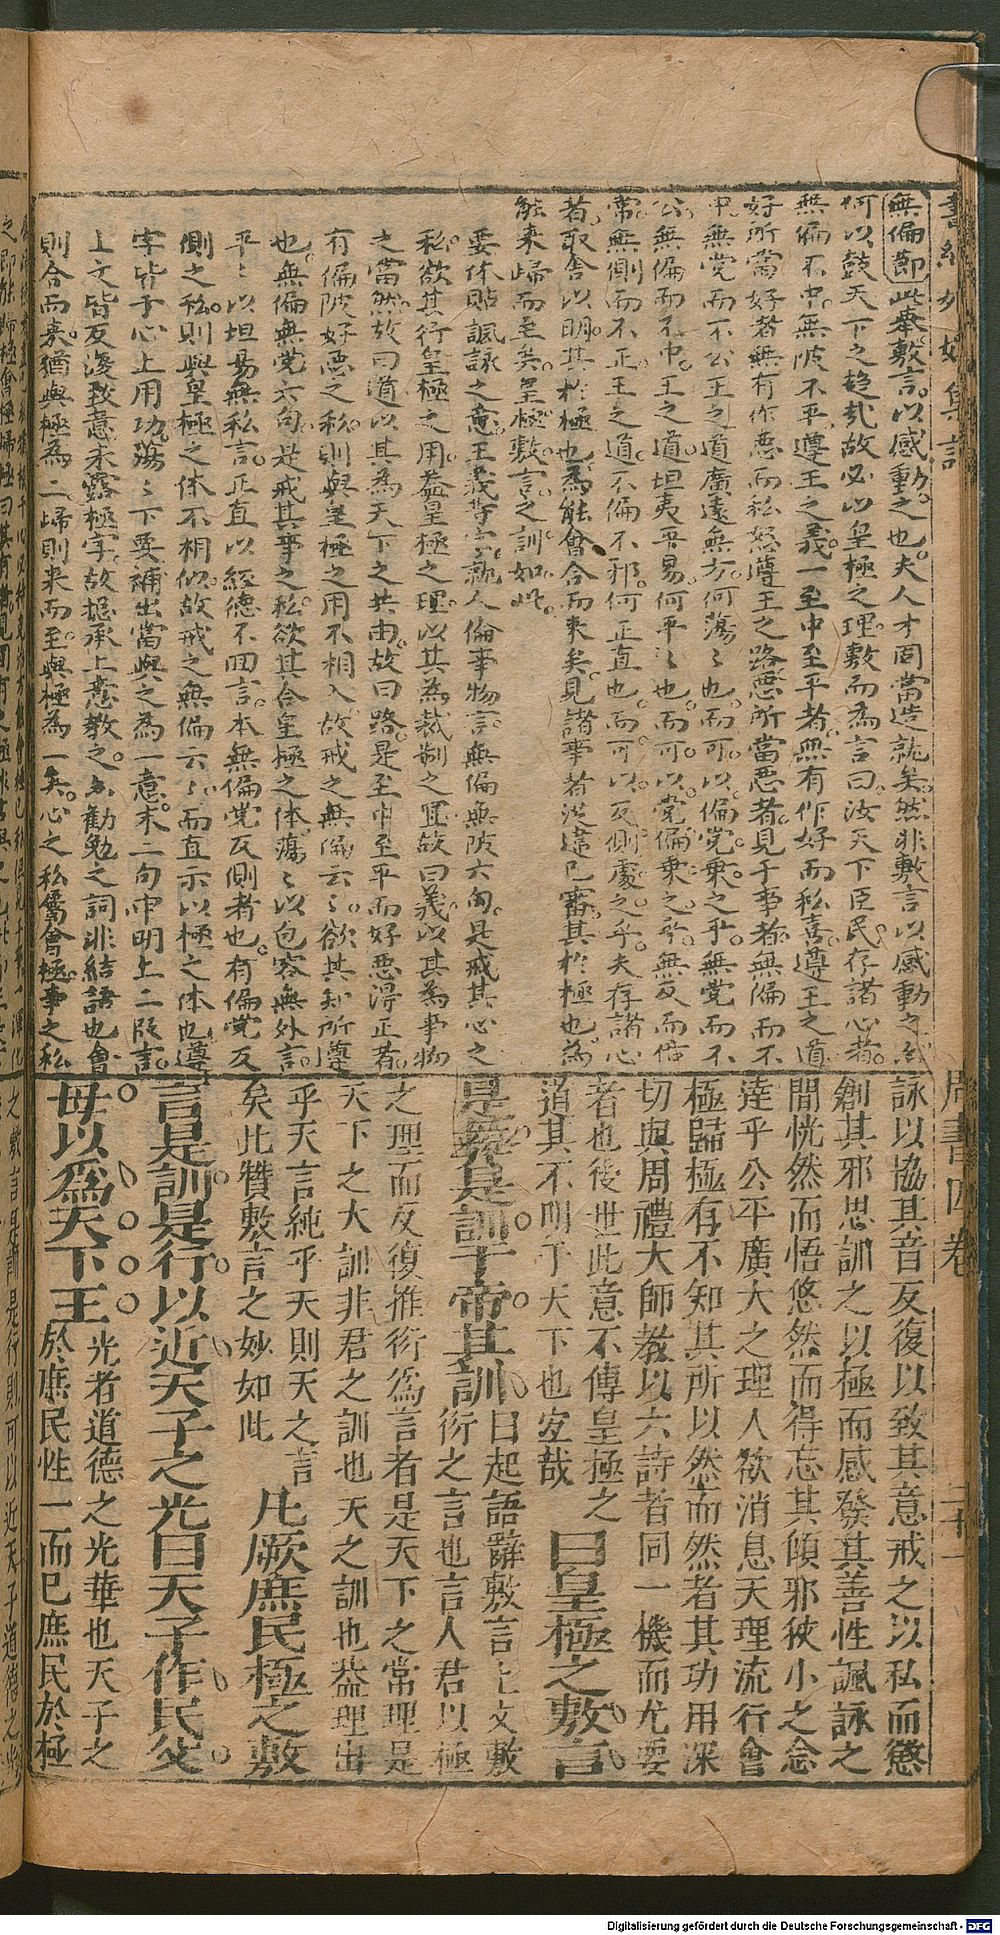 無偏節此奉敷言以感動之也夫人才固當造就矣然非敷言以感動之
何以鼓天下之趋哉故必以皇極之理敷而為言曰汝天下臣民存諸心者
無偏不中無陂不平遵王之義一至中至平者無有作好而私喜遵王之道
好所當好者無有作惡而私怒遵王之路惡所當惡者見于事者無偏而不
中無党而不公王之道廣遠無方何蕩〻也而可以偏党乗之乎無党而不
公無偏而不中王之道坦夷平易何平〻也而可以党偏乗之乎無反而倍
常無側而不正王之道不偏不邪何正直也而可以反側處之乎夫存諸心
者取舍以明其於極也為能會合而來矣見諸事者從違已審其於極也為
能來歸而至矣皇極敷言之訓如此
要体貼諷詠之意王義等字就人倫事物言無偏無陂六句是戒其心之
私欲其行皇極之用葢皇極之理以其為裁制之宜故曰義以其為事物
之當然故曰道以其為天下之共由故曰路是至中至平而好惡得正者
有偏陂好惡之私則與皇極之用不相入故戒之無偏云〻欲其知所遵
也無偏無党六句是戒其事之私欲其合皇極之体蕩〻以包容無外言
平〻以坦易無私言正直以經德不回言本無偏党反側者也有偏党反
側之私則與皇極之体不相似故戒之無偏云〻而直示以極之体也遵
字皆于心上用功蕩〻下要補出當與之為一意末二句申明上二段言
上文皆反復致意未露極字故揔承上意教之亦勸勉之詞非結語也會
則合而來猶與極為二歸則來而至與極為一矣心之私僃會極事之私
詠以協其音反復以致其意戒之以私而懲
創其邪思訓之以極而感發其善性諷詠之
間恍然而悟悠然而得忘其傾邪狹小之念
達乎公平廣大之理人欲消息天理流行會
極歸極有不知其所以然而然者其功用深
切與周禮大師教以六詩者同一機而尤要
者也後世此意不傳皇極之
道其不明于天下也宐哉 曰皇極之敷言
是彛是訓于帝其訓 曰起語辭敷言上文敷
衍之言也言人君以極
之理而反復推衍為言者是天下之常理是
天下之大訓非君之訓也天之訓也葢理出
乎天言純乎天則天之言
矣此贊敷言之妙如此 凡厥庶民極之敷
言是訓是行以近天子之光曰天子作民父
母以為天下王 光者道德之光華也天子之
於庶民性一而已庶民於極
周書四卷
Digitalisierung gefördert durch die Deutsche Forschungsgemeinschaft - DFG